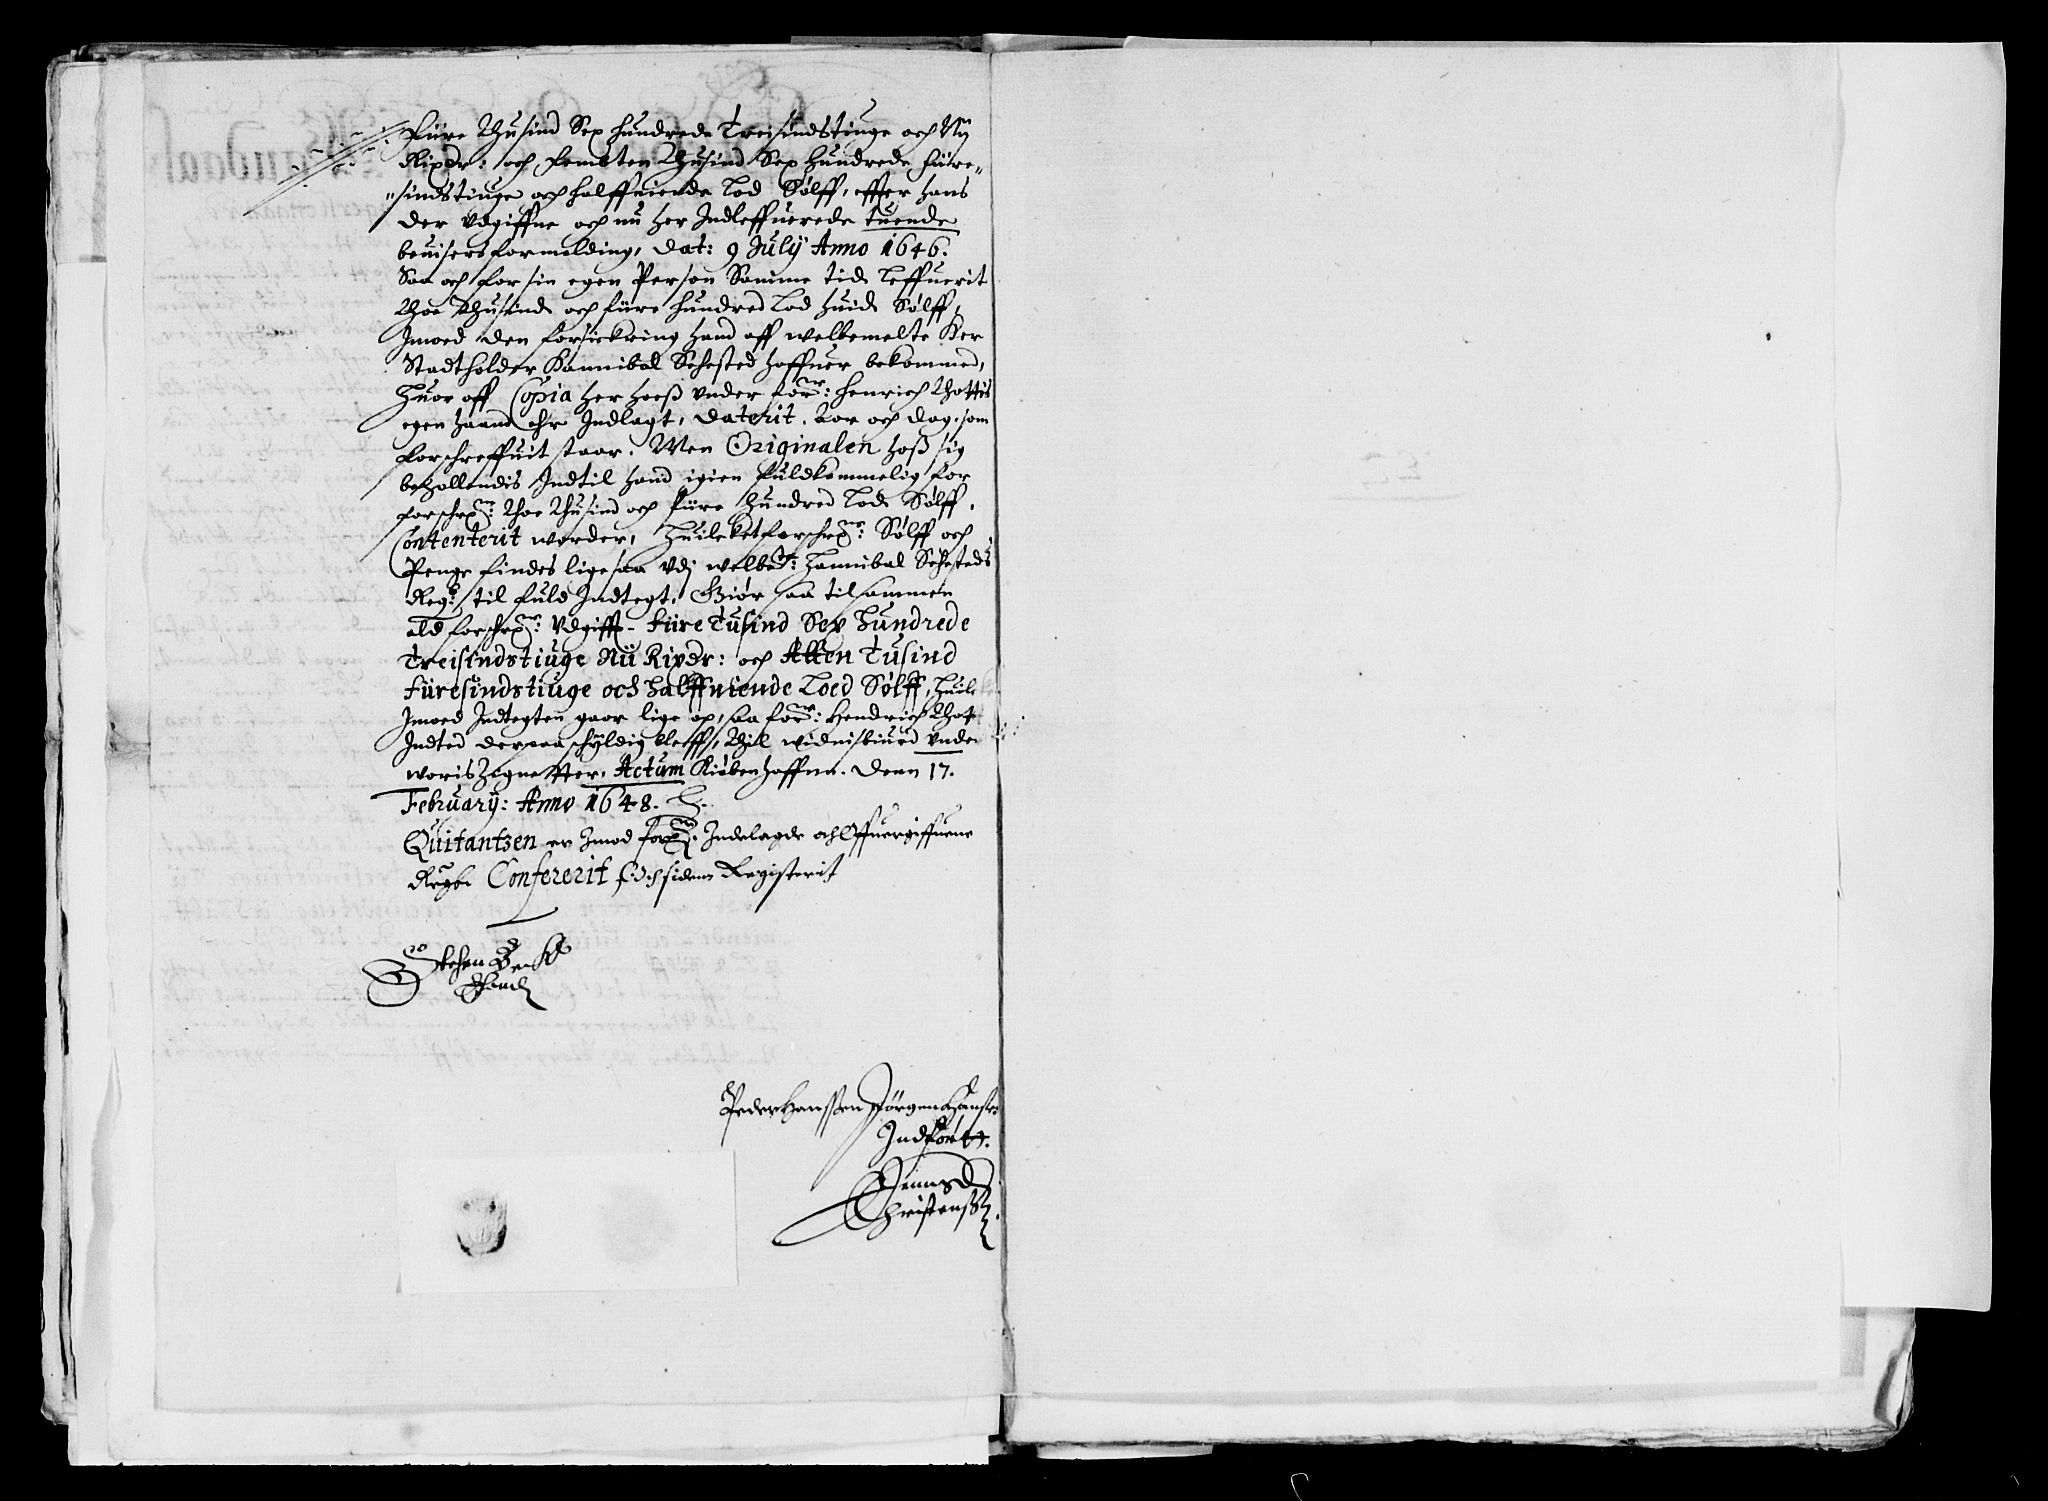 Fiire Thusind Sex hundrede Treisindstiuge och Nij
Rixdr: och fembten Thusind Sex hundrede fiire-
sindstiuge och halffniende Lod Sølff, effter hans
der vdgiffne och nu her Indleffuerede tuende
beuisers formelding, Dat: 9 July Anno 1646.
Saa och for sin egen Person Samme tid leffuerit
Thoe Thusind och fiire hundred Lod huid Sølff,
Imoed den forsickring hand aff welbemelte Her
Stadtholder Hannibal Sehested haffuer bekommed,
Huor aff Copia her hoes vnder for:ne Henrich Thottis
egen haand ehr Indlagt, Daterit Aar och dag som
forschreffuit staar. Men Originalen hoss sig
beholdendis Indtil hand igien fuldkommelig for
forschr:ne Thoe Thusind och fiire hundred Lod Sølff,
Contenterit worder, Huilket forschr:ne Sølff och
Penge findes ligesaa vdj welb:te Hannibal Sehesteds
Regb: til fuld Indtegt, Giør saa tilsammen
ald forschr:ne Vdgifft - fiire Tusind Sex Hundrede
Treisindstiuge Nii Rixdr: och Atten Tusind
fiiresindstiuge och Halffniende Loed Sølff, Huilk
Imoed Indtegten gaar lige op, saa for:ne Hendrich Thot
Indted derpaa schyldig bleff, Thil widnisbiurd vnder
woris Zignetter, Actum Kiøbenhaffnn. Denn 17.
February: Anno 1648.
Quitantzen er Imod for:ne Indelagde och Offuergiffuene
Regb: Confererit och siden Registerit
Stehen Beck
Peder Hanssen Jørgen Hansen
Indført.
Christenss